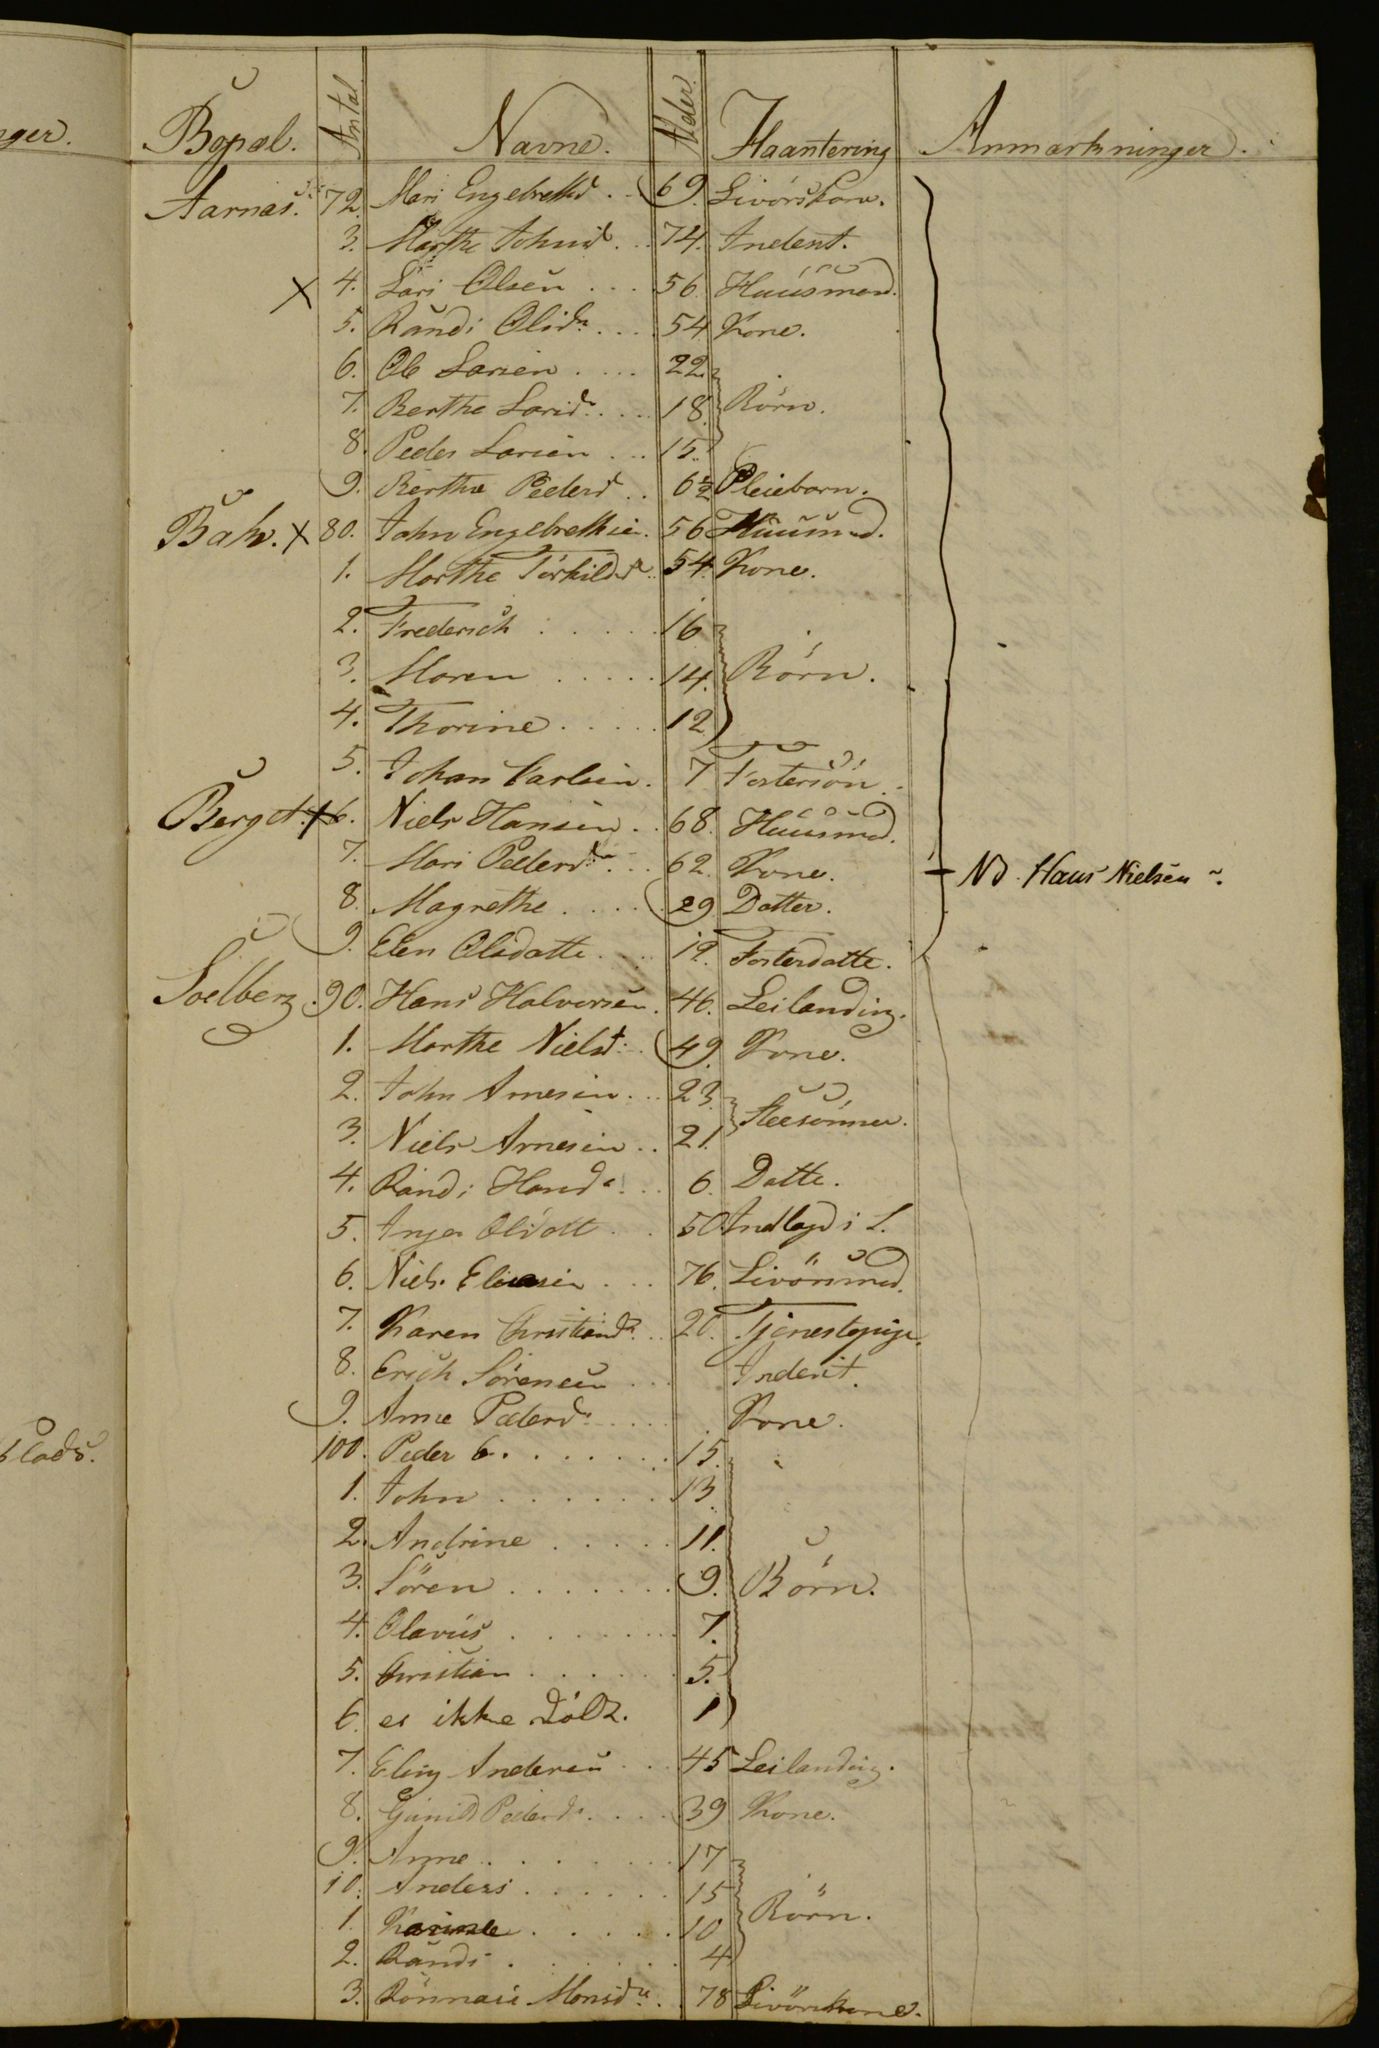 ger.
Bopæl. Antal Navne. Alder. Haantering Anmærkninger.
Aarnæs. 72. Mari Engebrettsd . . 69. Livörskone.
3. Marthe Johnsd . . 74. Inderst.
X 4. Lars Olsen . . . 56. Huusmand.
5. Randi Olsdr. . . . 54 Kone.
6. Ole Larsen . . . . 22
7. Berthe Larsdr. . . . 18 Börn.
8. Peder Larsen . . . 15.
9. Berthe Pedersd . . 6½ Pleiebarn.
Bak. X 80. John Engebrethsen. 56 Huusmd.
1. Marthe Torkildsdr. . 54. Kone.
2. Frederich . . . . . 16
3. Maren . . . . . 14. Börn.
4. Thorine . . . . . 12
5. Johan Carlsen . 7 Fostersön.
Berget. X 6. Niels Hansen . . 68. Huusmd.
7. Mari Pedersdr. . . . 62. Kone. Nd. Hans Nielsen
8. Magrethe . . . . 29 Datter.
9. Elen Olsdatte . . . 19. Fosterdatte.
Soelberg. 90. Hans Halvorsen. 46. Leilanding.
1. Marthe Nielsd . . 49. Kone.
2. John Arnesen . . . 23.
3. Niels Arnesen . . 21. Steesönner.
4. Randi Hansdr. . . . 6. Datte.
5. Inger Olsdatt . . 50. Indlagd i L.
6. Niels Eliasen . . . 76. Livörsmd.
7. Karen Christiansdr. . 20. Tjenestepige.
8. Erich Sörensen . . . Inderst.
9. Anne Pedersdr. . . . Kone.
100. Peder 6. . . . . . . 15.
blads.
1. John . . . . . . 13
2. Andrine . . . . . 11.
3. Sören . . . . . . . 9. Börn.
4. Olavus . . . . . . . 7.
5. Christian . . . . . . 5.
6. er ikke Död. 1
7. Eling Andersen . . . 45 Leilanding.
8. Gunild Pedersdr. . . . 39 Kone.
9. Anne . . . . . . . 17
10. Anders . . . . . . 15
1. Karine . . . . . 10 Börn.
2. Randi . . . . . . 4
3. Rönnaue Monsdr. . . 78 Livörskone.